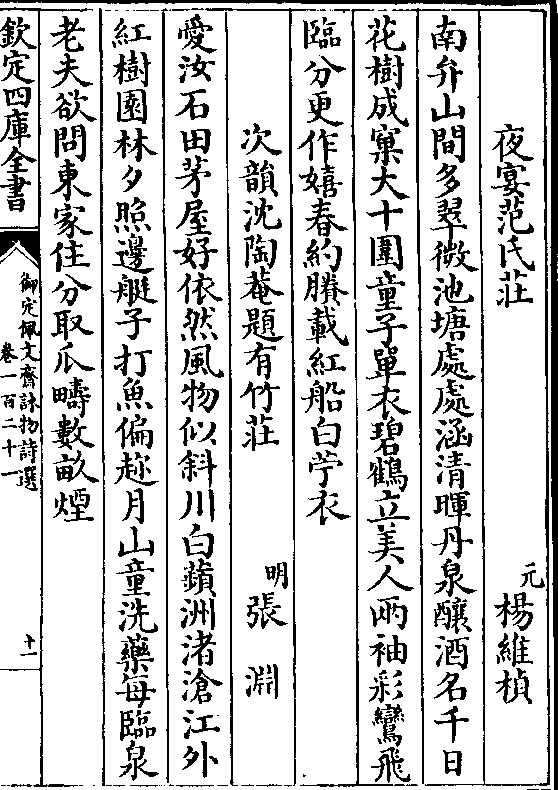 夜宴范氏莊
元楊維楨
南弁山間多翠微池塘處處涵清暉丹泉釀酒名千日
花樹成窠大十圍童子單衣碧鶴立美人兩袖彩鸞飛
臨分更作嬉春約賸載紅船白苧衣
次韻沈陶菴題有竹莊
明張淵
愛汝石田茅屋好依然風物似斜川白蘋洲渚滄江外
紅樹園林夕照邊艇子打魚偏趂月山童洗藥每臨泉
老夫欲問東家住分取瓜疇數畝煙
欽定四庫全書
御定佩文齋詠物詩選
卷一百二十一
十一